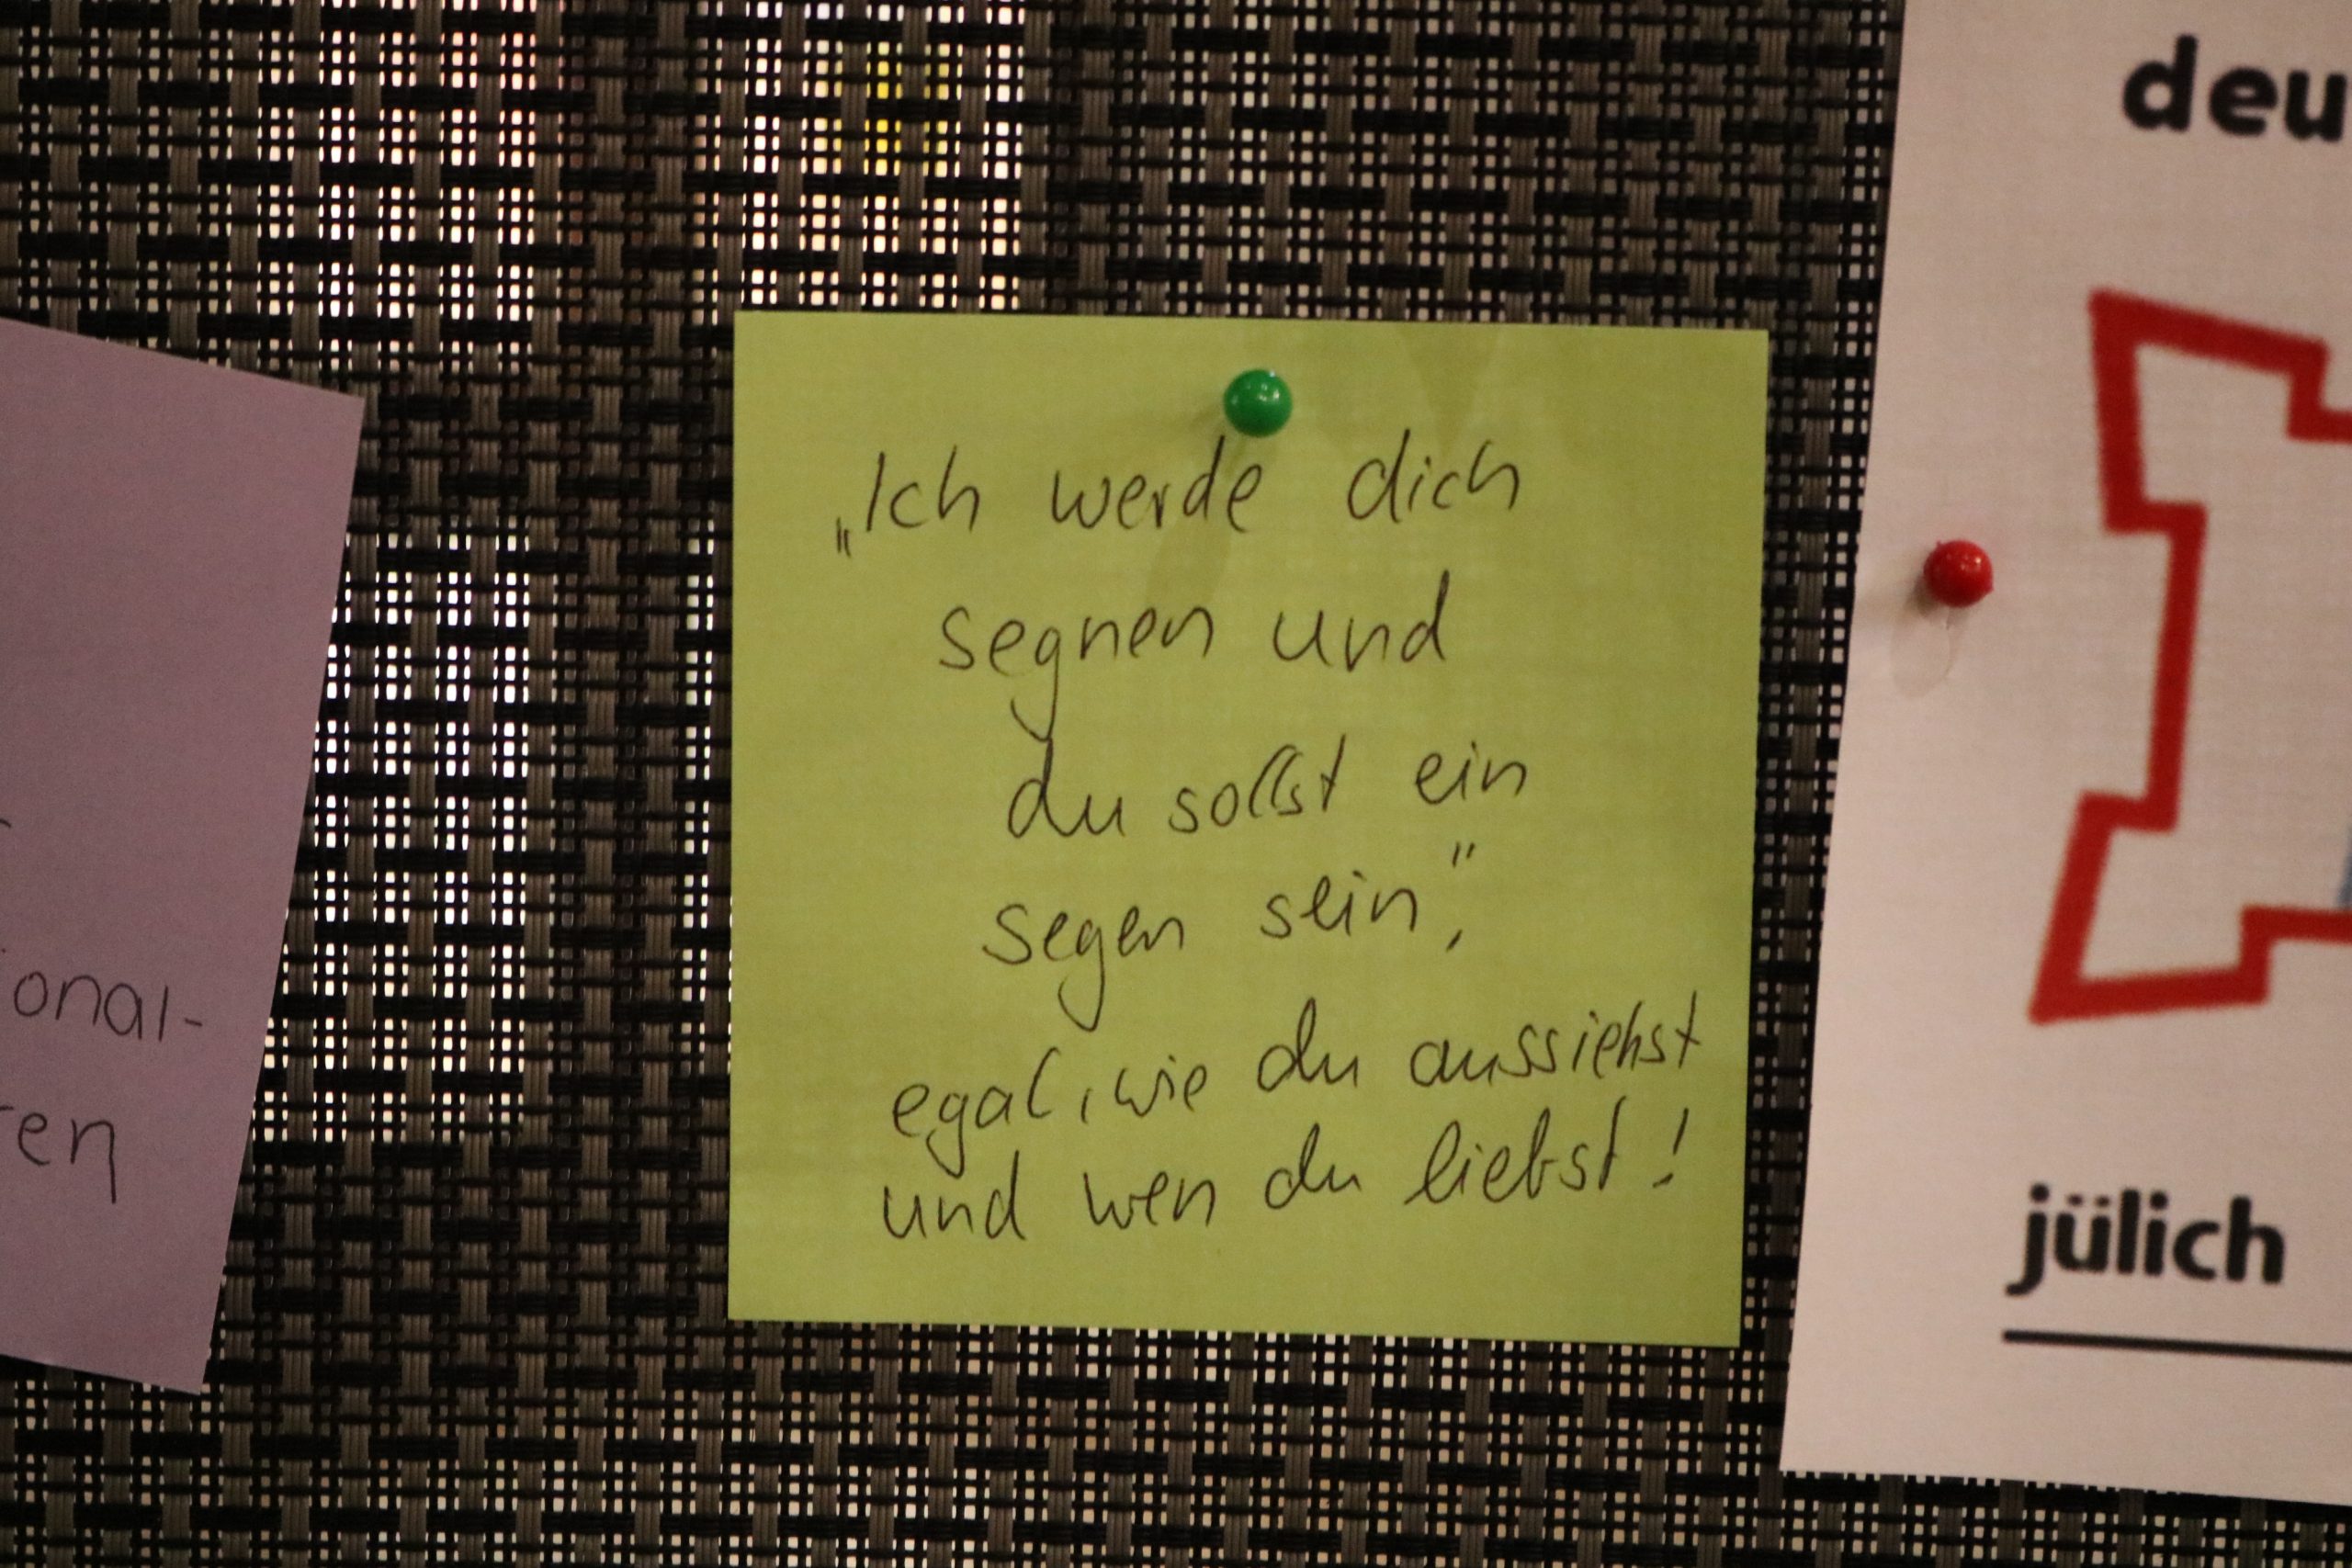 onal-
en
„Ich werde dich
segnen und
du sollst ein
segen sein“,
egal, wie du aussiehst
und wen du liebst!
deu
jülich